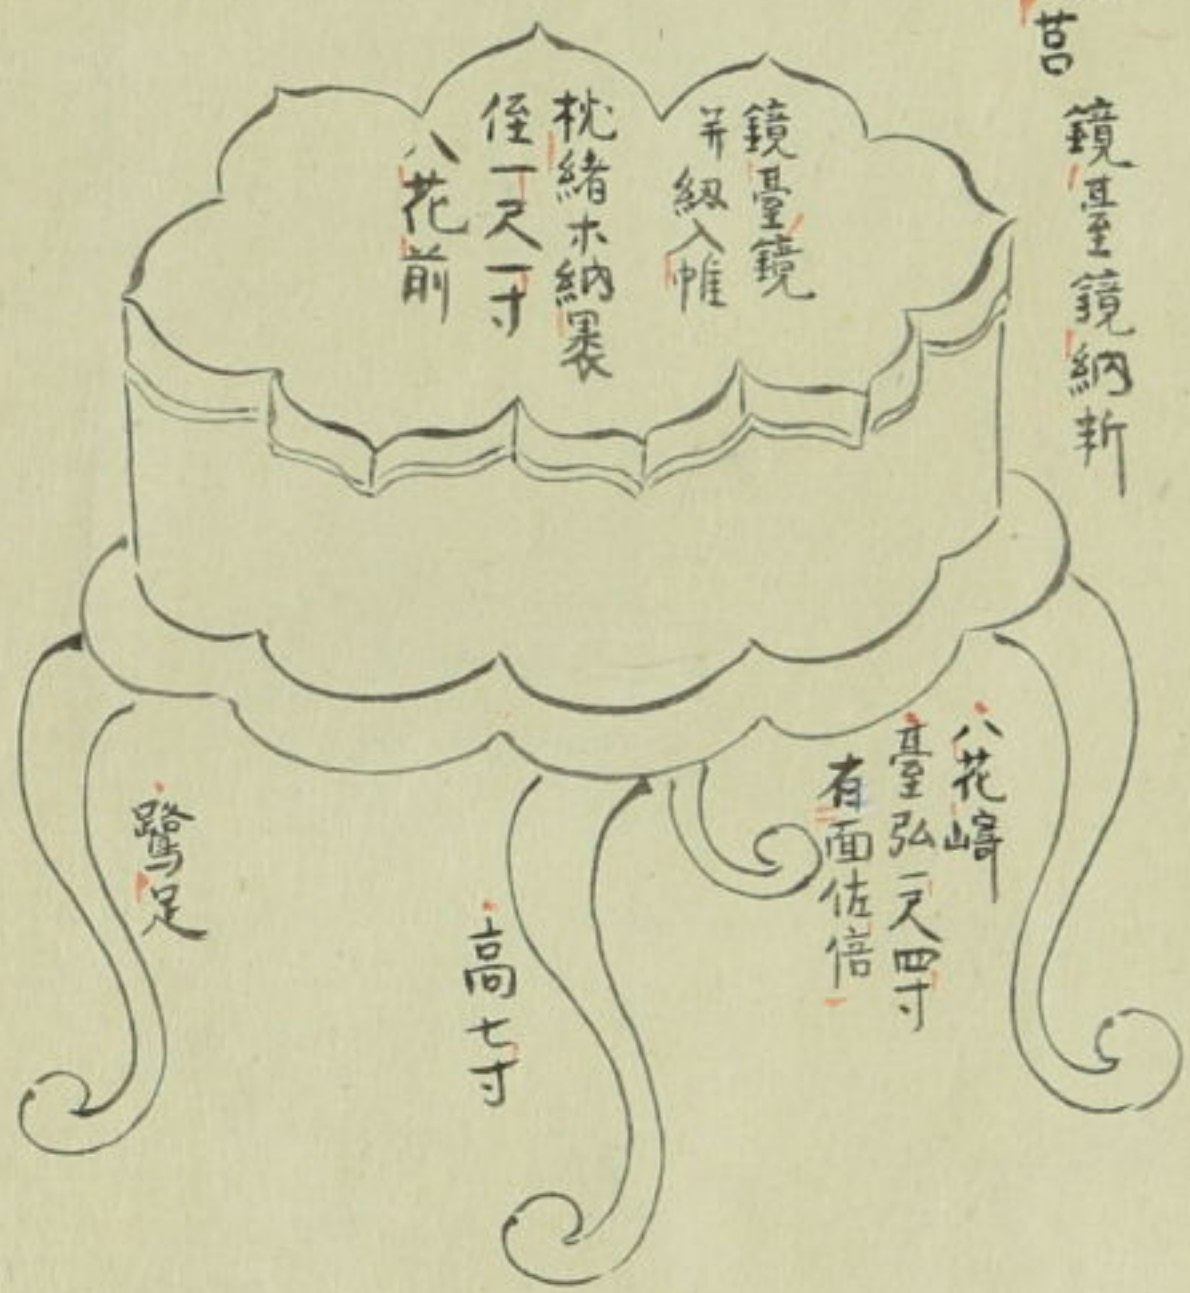 莒
鏡臺鏡納新
鏡臺鏡
并 級入帷
枕緒木納褁
侄一尺一寸
八花前
八花崎
臺弘一尺四寸
有面佐倍
高七寸
鷺足